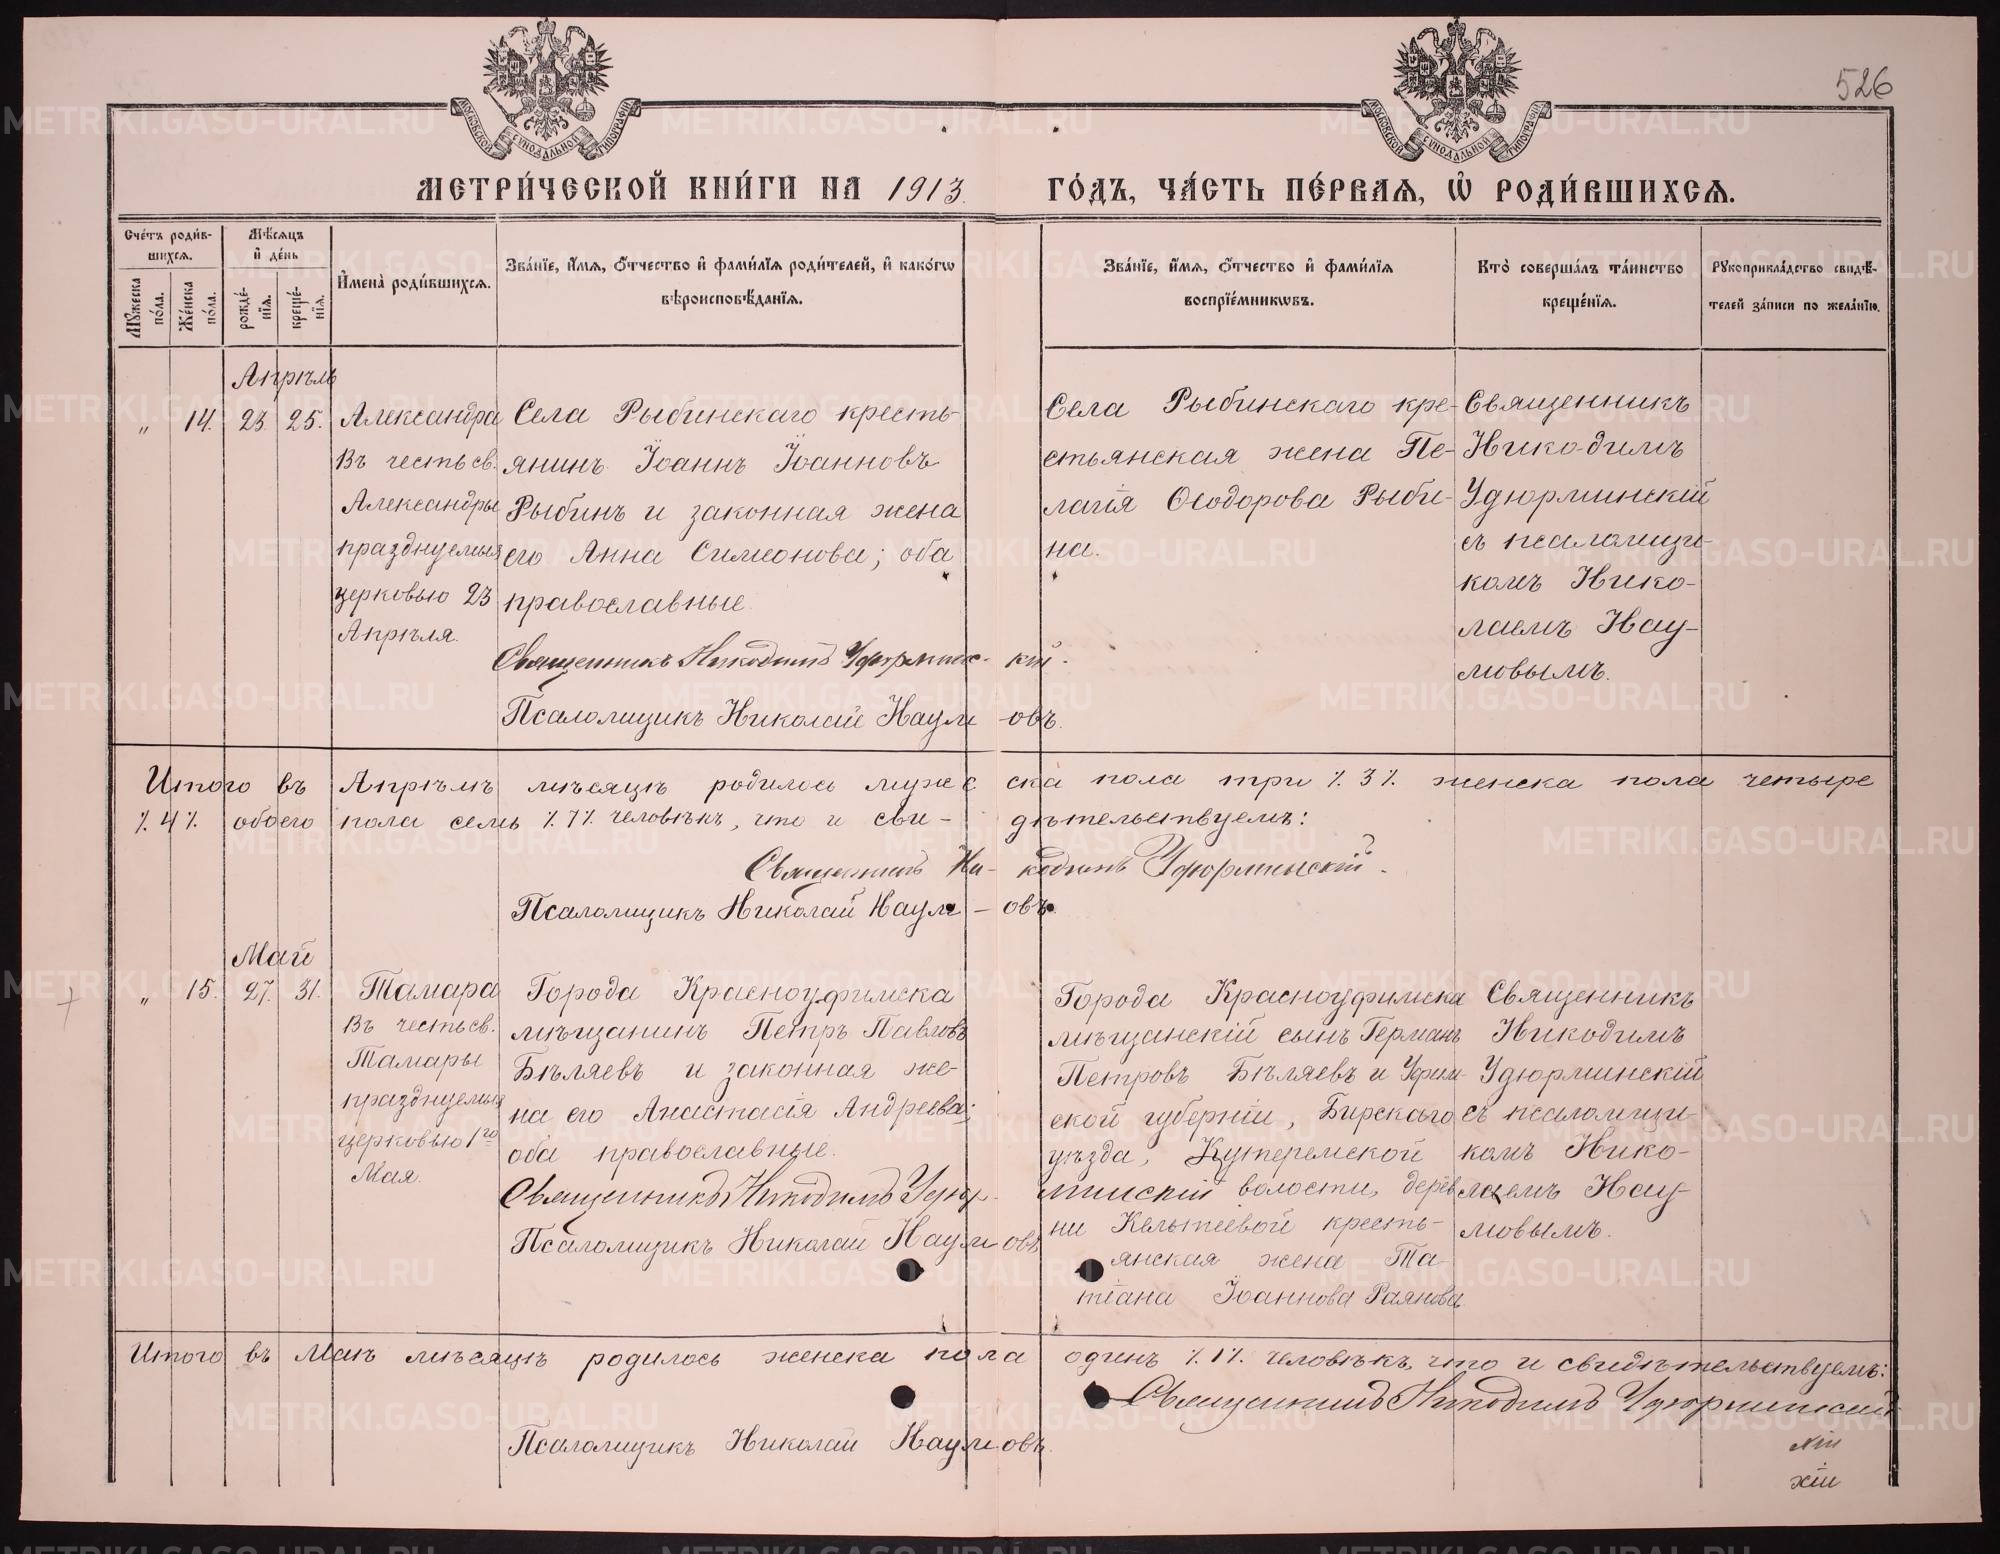 526
МОСКОВСКОЙ СѴНОДАЛЬНОЙ ТИПОГРАФІИ
МОСКОВСКОЙ СѴНОДАЛЬНОЙ ТИПОГРАФІИ
МЕТРИ́ЧЕСКОЙ КНИ́ГИ НА 1913. ГО́ДЪ, ЧА́СТЬ ПЕ́РВАѦ, Ѡ҆ РОДИ́ВШИХСѦ.
Сче́тъ роди́в-
шихсѧ.
Мꙋ́жеска по́ла.
Же́нска по́ла.
Мѣ́сѧцъ
и҆ де́нь
рожде́-
нїѧ.
креще́-
нїѧ.
И҆мена̀ роди́вшихсѧ.
Зва́нїе, и҆́мѧ, ѻ҆́тчество и҆ фами́лїѧ роди́телей, и҆ како́гѡ
вѣроисповѣ́данїѧ.
Зва́нїе, и҆́мѧ, ѻ҆́тчество и҆ фами́лїѧ
воспрїе́мникѡвъ.
Кто̀ соверша́лъ та́инство
креще́нїѧ.
Рꙋкоприкла́дство свидѣ́-
телей за́писи по жела́нїю.
Апрѣль
„ 14. 23. 25.
Александра
Въ честь св.
Александры
празднуемыя
церковью 23
Апрѣля.
Села Рыбинскаго кресть-
янинъ Іоаннъ Іоанновъ
Рыбинъ и законная жена
его Анна Симеонова; оба
православные.
Священникъ Никодимъ Удюрминс- кій.
Псаломщикъ Николай Наум -овъ.
Села Рыбинскаго кре-
стьянская жена Пе-
лагія Ѳеодорова Рыби-
на.
Священникъ
Никодимъ
Удюрминскій
съ псаломщи-
комъ Нико-
лаемъ Нау-
мовымъ.
Итого въ Апрѣлѣ мѣсяцѣ родилось мужес ска пола три ٪3٪ женска пола четыре
٪4٪ обоего пола семь ٪7٪ человѣкъ, что и сви- дѣтельствуемъ:
Священникъ Ни- кодимъ Удюрминскій.
Псаломщикъ Николай Наум -овъ.
Май
„ 15. 27. 31.
Тамара
Въ честь св.
Тамары
празднуемыя
церковью 1го
Мая.
Города Красноуфимска
мѣщанинъ Петръ Павловъ
Бѣляевъ и законная же-
на его Анастасія Андреева;
оба православные.
Священникъ Никодимъ Удюр- минскій
Псаломщикъ Николай Наум овъ.
Города Красноуфимска
мѣщанскій сынъ Германъ
Петровъ Бѣляевъ и Уфим-
ской губерніи, Бирскаго
уѣзда, волости, дерев
ни кресть-
янская жена Та-
тіана Іоаннова Раянова
Священникъ
Никодимъ
Удюрминскій
съ псаломщи-
комъ Нико-
лаемъ Нау-
мовымъ.
Итого въ Маѣ мѣсяцѣ родилось женска пола одинъ ٪1٪ человѣкъ, что и свидѣтельствуемъ:
Священникъ Никодимъ Удюрминскій
Псаломщикъ Николай Наум овъ.
METRIKI.GASO-URAL.RU